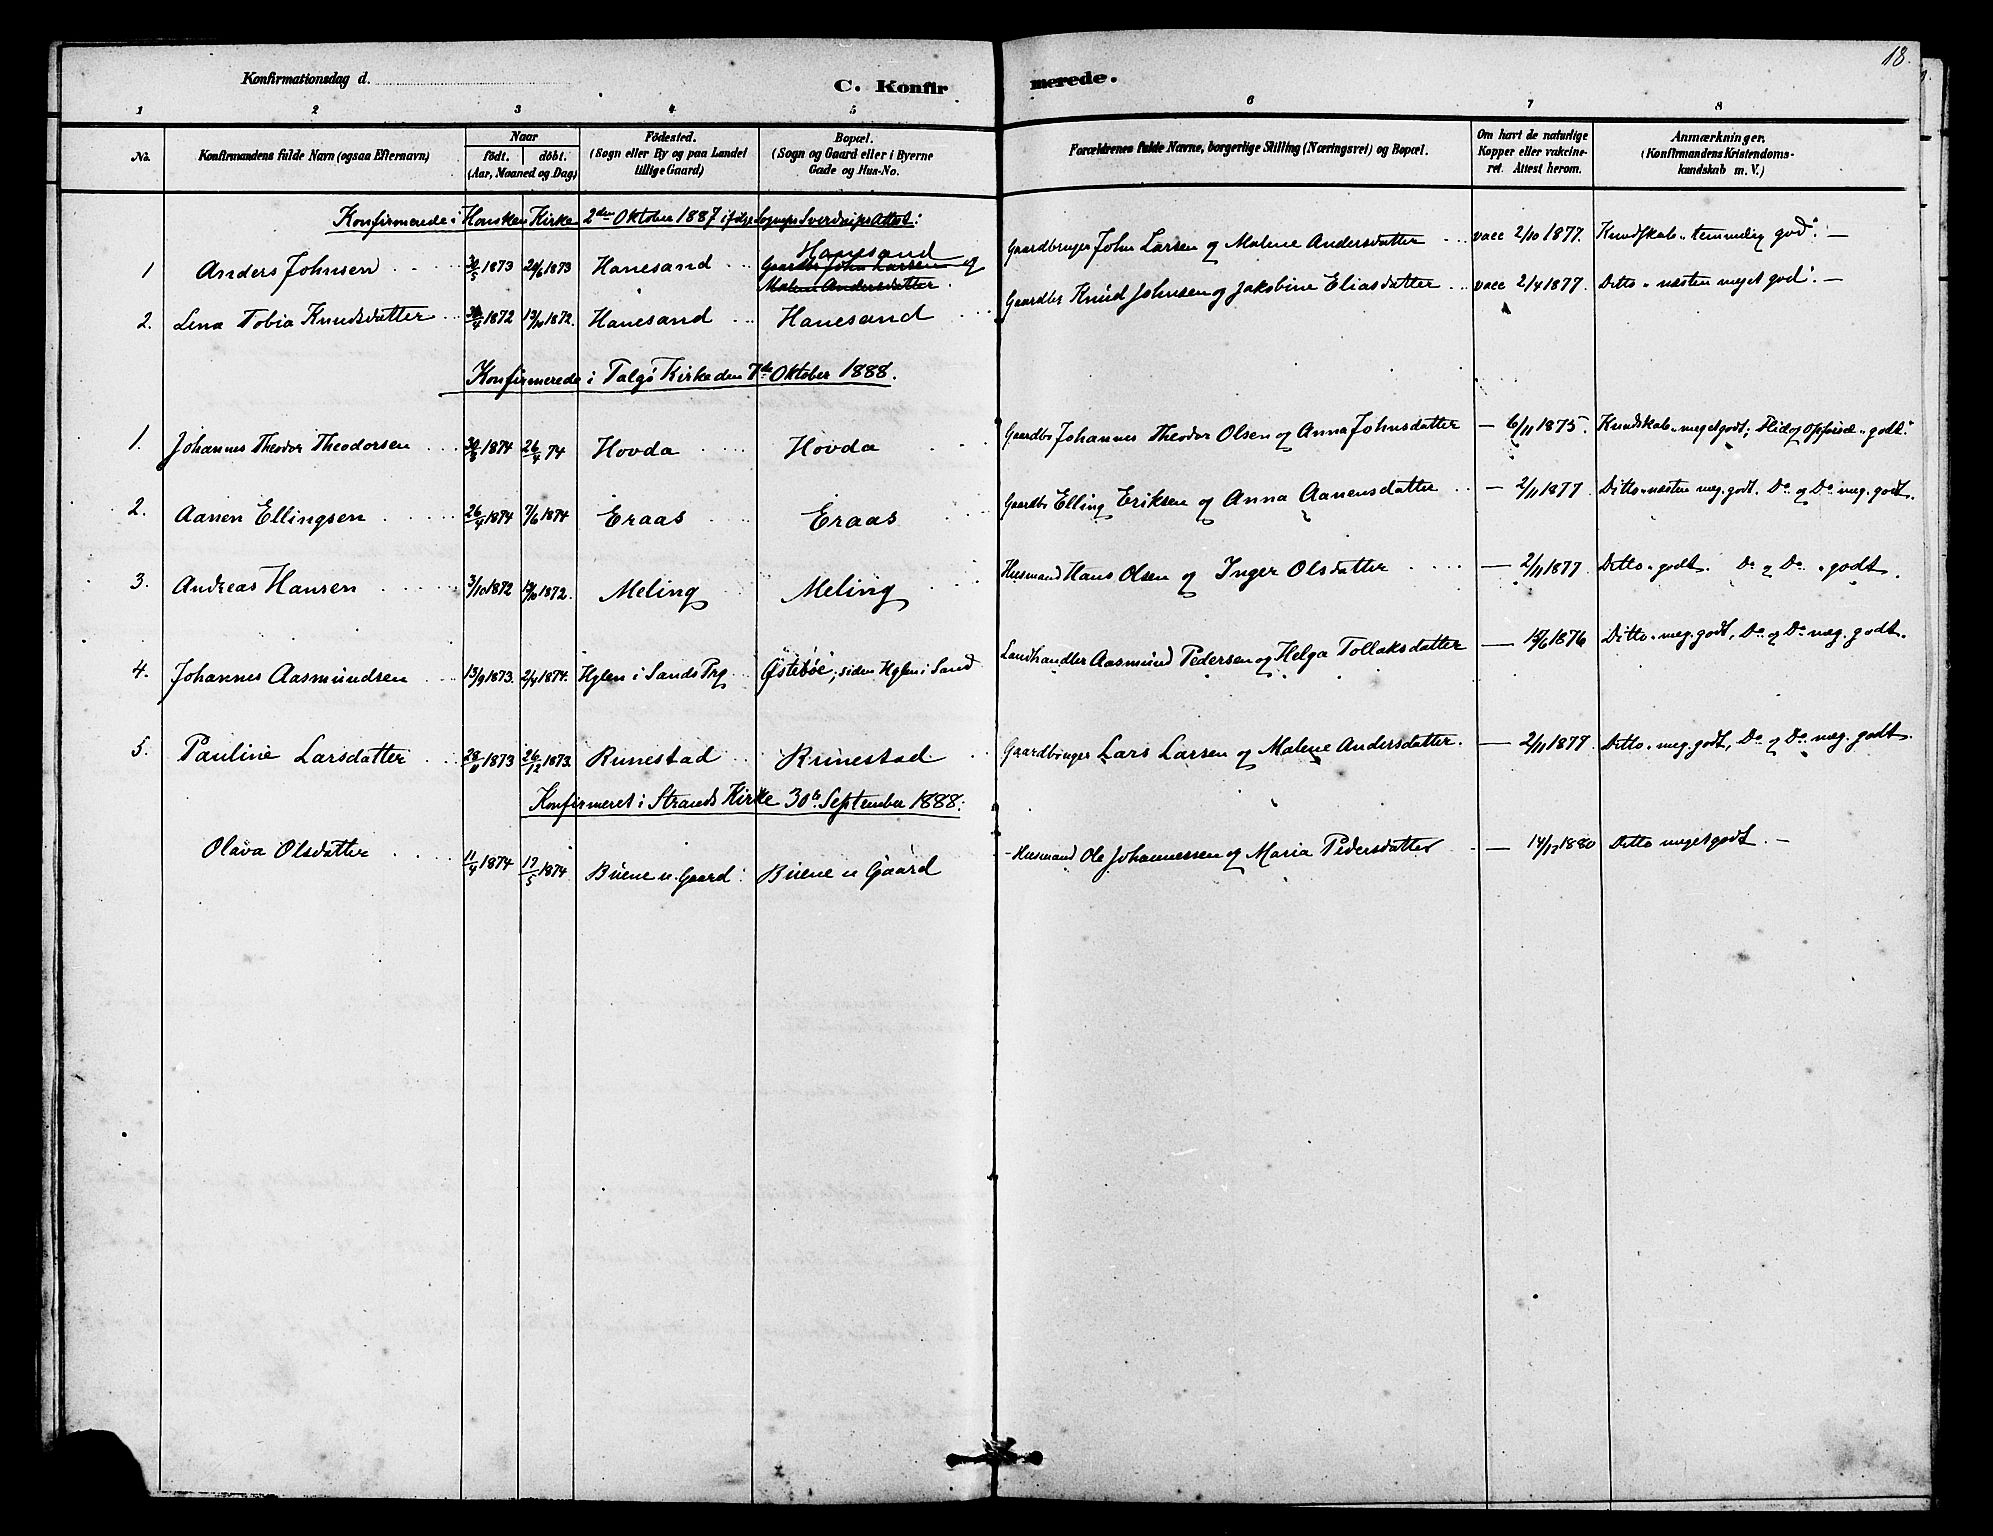 18.
Konfirmationsdag d.
C. Konfirmerede.
1 2 3 4 5 6 7 8
No. Konfirmandens fulde Navn (ogsaa Efternavn) Naar födt. döbt. (Aar, Maaned og Dag) Födested. (Sogn eller By og paa Landet tillige Gaard) Bopæl. (Sogn og Gaard eller i Byerne Gade og Hus-No. Forældrenes fulde Navne, borgerlige Stilling (Næringsvei) og Bopæl. Om havt de naturlige Kopper eller vakcineret. Attest herom. Anmærkninger. (Konfirmandens Kristendomskundskab m. V.)
Konfirmerede i Hausken Kirke 2den Oktober 1887 ifølge Sognepr Sverdrups Attest:
1 Anders Johnsen 1873 1873 Hanesand Hanesand Gaardbr John Larsen og Malene Andersdatter. Gaardbruger John Larsen og Malene Andersdatter vacc 2/10 1877. Kundskab "temmelig god". —
2. Lena Tobia Knudsdatter 1872 1872. Hanesand Hanesand Gaardbr Knud Johnsen og Jakobine Eliasdatter vacc 2/4 1877. Ditto "næsten meget god". —
Konfirmerede i Talgö Kirke den 7de Oktober 1888.
1. Johannes Theodor Theodorsen 30/3 1874 26/4 74 Hovda Hovda Gaardbr Johannes Theodor Olsen og Anna Johnsdatter — 6/11 1875. Kundskab "meget godt"; Flid og Opförsel "godt".
2. Aanen Ellingsen 26/4 1874 7/6 1874 Eraas Eraas Gaardbr Elling Eriksen og Anna Aanensdatter — 2/11 1877. Ditto "næsten meg. godt. Do og Do meg. godt.
3. Andreas Hansen 3/10 1872 1872. Meling Meling Husmand Hans Olsen og Inger Olsdatter — 2/11 1877 Ditto "godt. Do og Do "godt.
4. Johannes Aasmundsen 13/9 1873. 2/4 1874. Hylen i Sands Prg Østebøe, siden Hylen i Sand Landhandler Aasmund Pedersen og Helga Tollaksdatter — 1876 Ditto "meg. godt, Do og Do meg. godt.
5. Pauline Larsdatter 1873 26/12 1873. Runestad Runestad Gaardbruger Lars Larsen og Malene Andersdatter. — 2/11 1877 Ditto "meg. godt, Do og Do meg. godt.
Konfirmeret i Strands Kirke 30te September 1888:
Olava Olsdatter 11/4 1874 17/5 1874 Buene u. Gaard Buene u Gaard Husmand Ole Johannessen og Maria Pedersdatter — 14/12 1880 Ditto meget godt. —